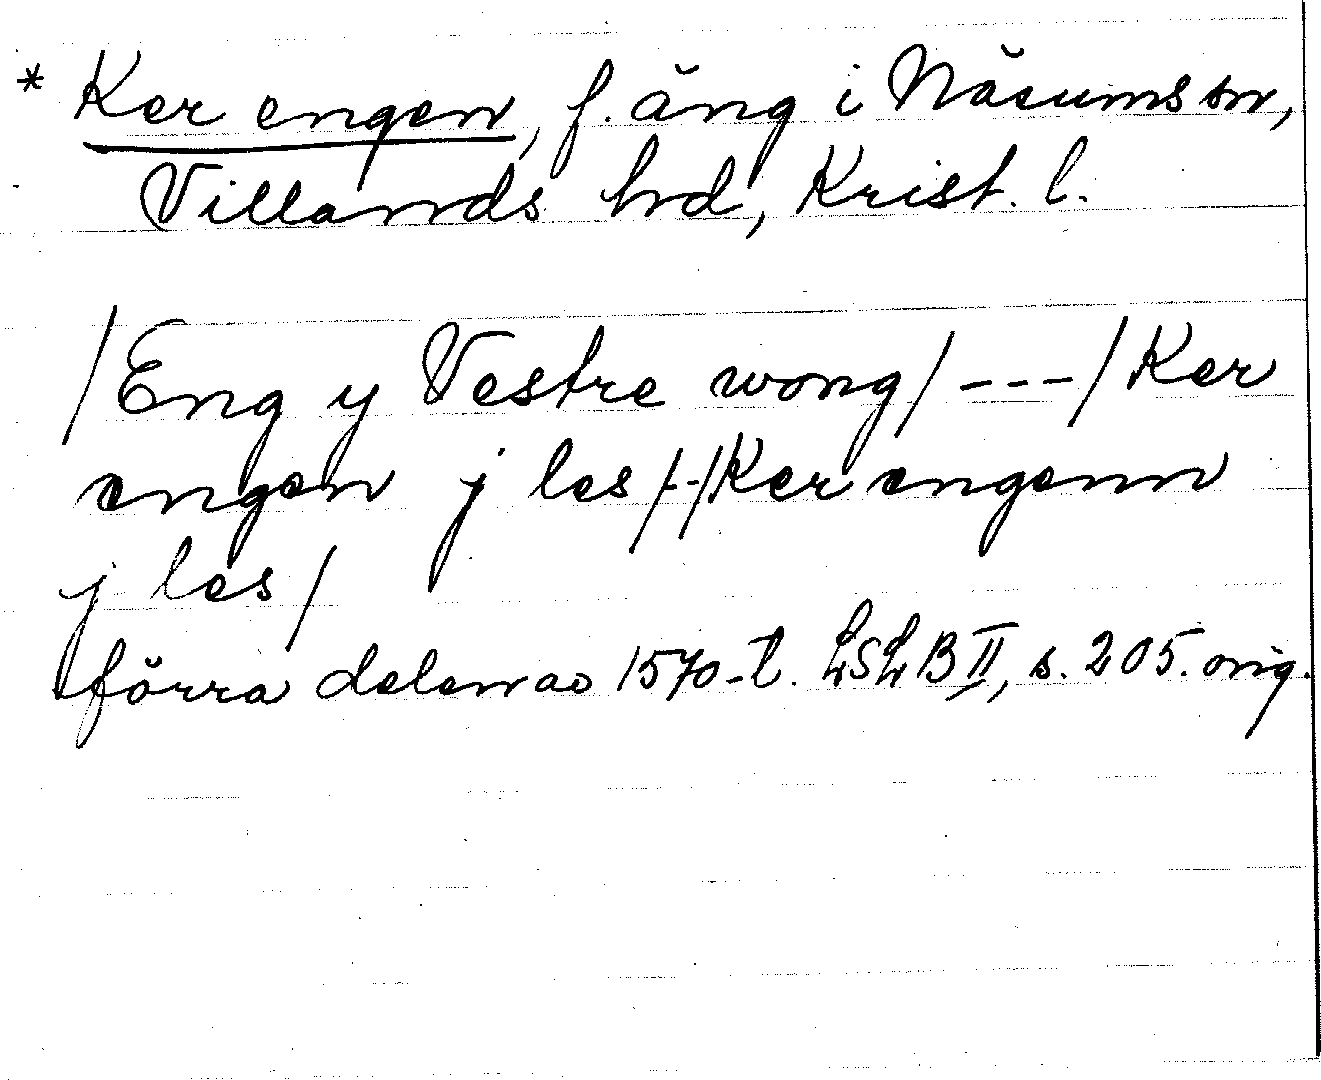 * Ker engen, f. äng i Näsums sn,
Villands hd, Krist. l.
/Eng y Vestre wong/ --- /Ker
engen j les/--/Ker engenn
j les/
förra delen av 1570-t. LSLB II, s. 205. orig.